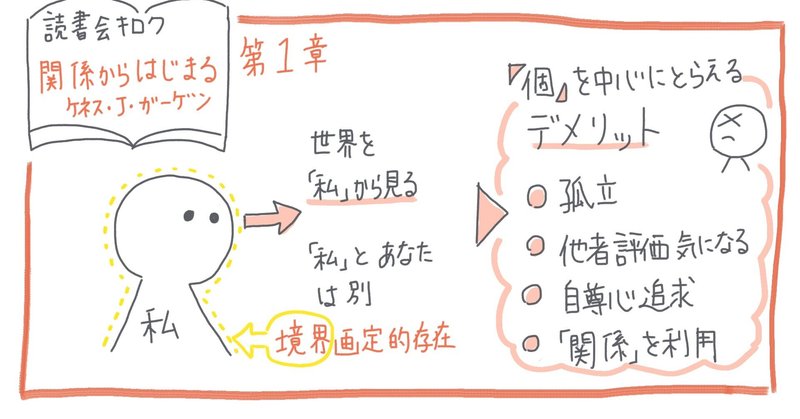 読書会キロク
関係からはじまる
ケネス・J・ガーゲン
第1章
世界を
「私」から見る
「私」とあなた
は別
私
境界画定的存在
「個」を中心にとらえる
デメリット
孤立
他者評価気になる
自尊心追求
「関係」を利用